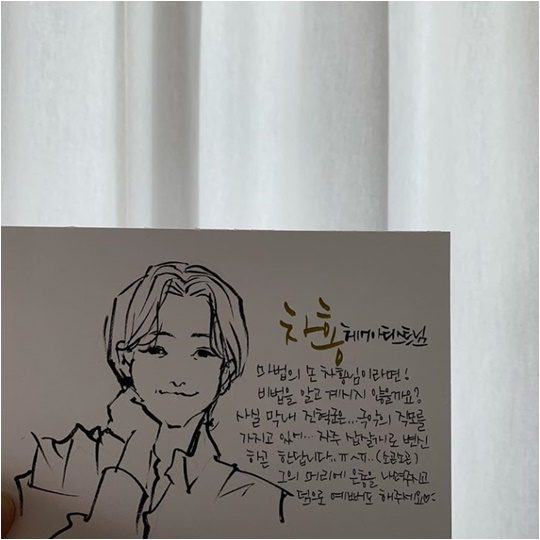 차홍 헤어아티스트님
마법의 손 차홍님이라면!
비법을 알고 계시지 않을까요?
사실 막내 진혁군은...극악의 직모를
가지고 있어... 자주 삽살개로 변신
하곤 한답니다..ㅠㅅㅠ..(소곤소곤)
그의 머리에 은총을 내려주시고
덤으로 예쁘도 해주세요♡